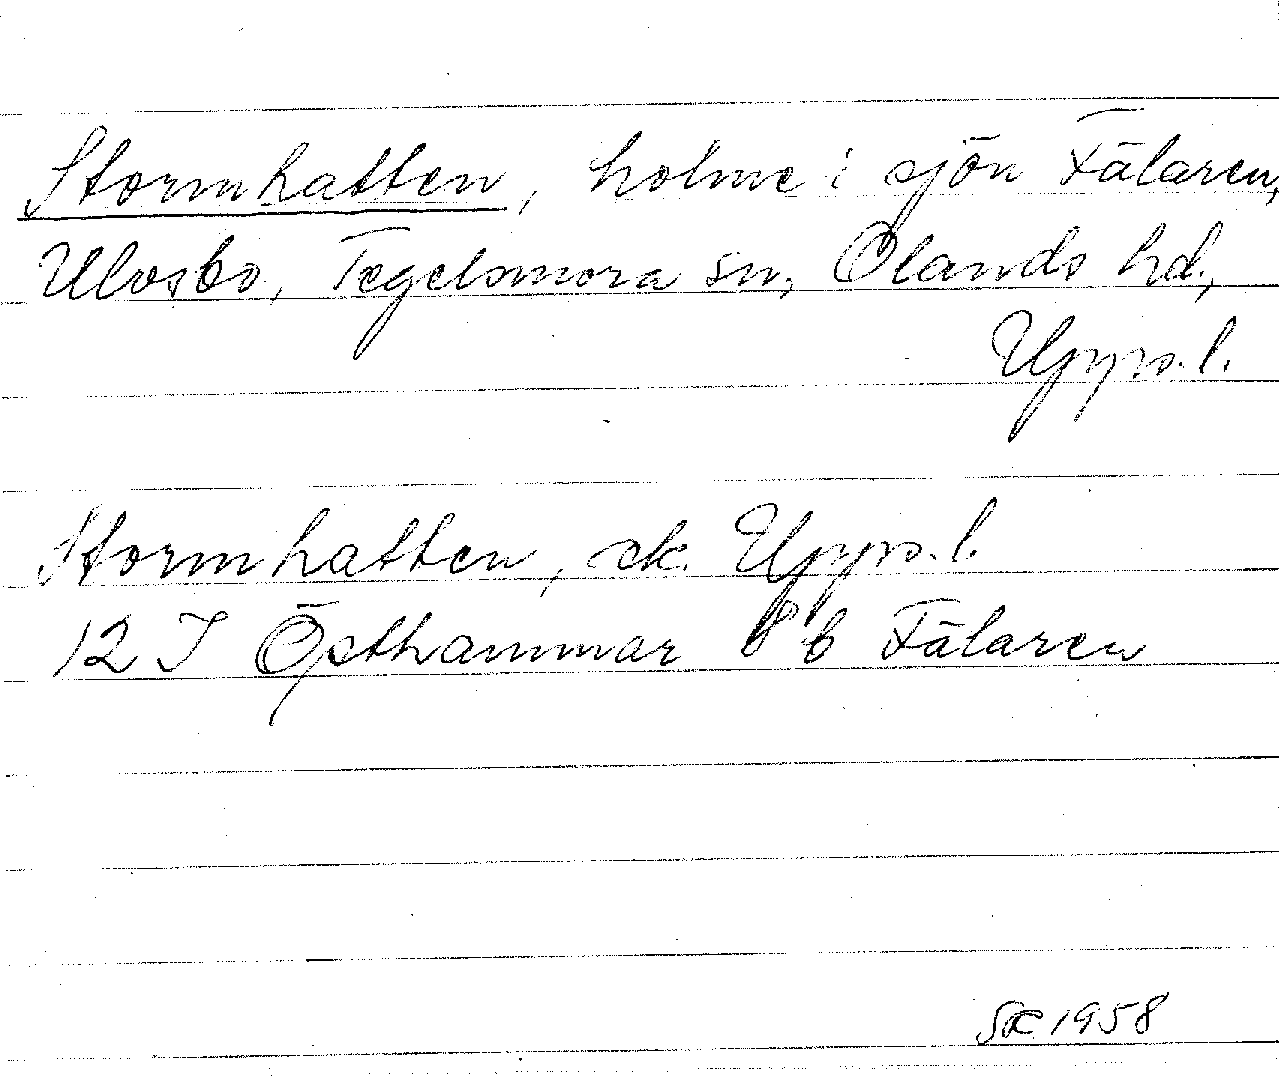 Stormhatten, holme i sjön Fälaren,
Ulvsbo, Tegelsmora sn, Olands hd,
Upps. l.
Stormhatten, ek. Upps. l.
12 I Östhammar 8 b Fälaren
SK 1958